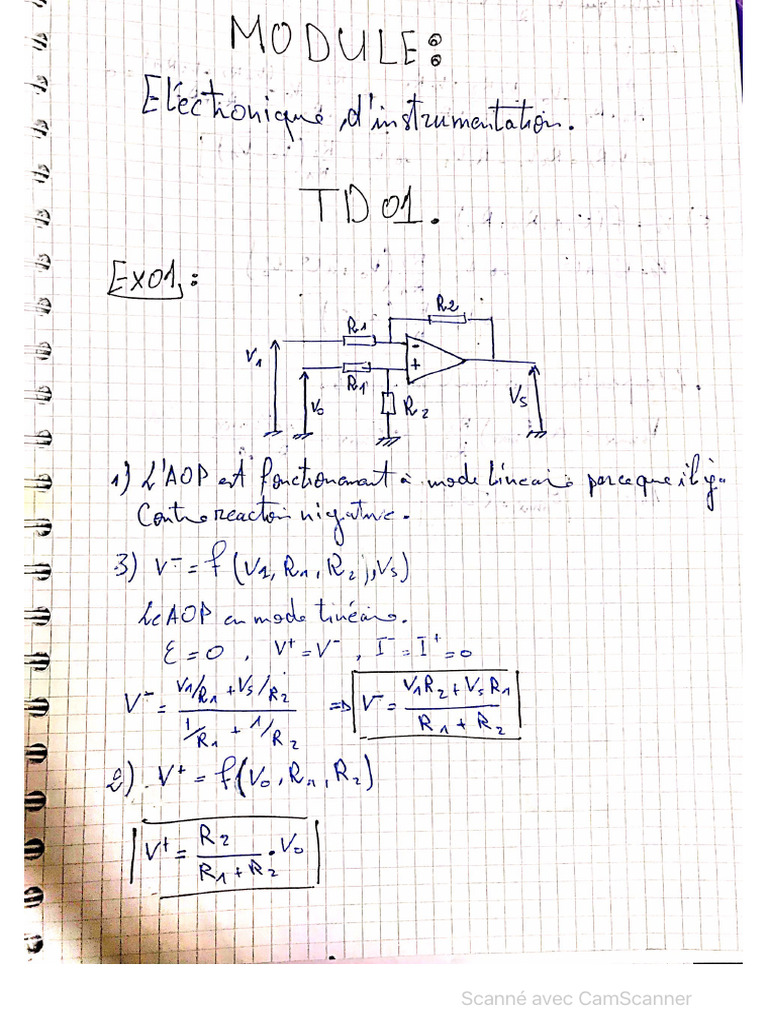 MODULE:
Electronique d'instrumentation.
TD01.
Ex01:
R2
R1
V1
-
+
R1
V0
R2
Vs
1) L'AOP est fonctionemant à mode lineair parceque il y a
Contre reaction nigative.
3) V⁻ = f(V1, R1, R2, Vs)
Le AOP en mode linéair.
ε = 0 , V⁺ = V⁻ , I⁻ = I⁺ = 0
V⁻ = (V1/R1 + Vs/R2) / (1/R1 + 1/R2) ⇒ V⁻ = (V1R2 + VsR1) / (R1 + R2)
2) V⁺ = f(V0, R1, R2)
V⁺ = R2 / (R1 + R2) . V0
Scanné avec CamScanner